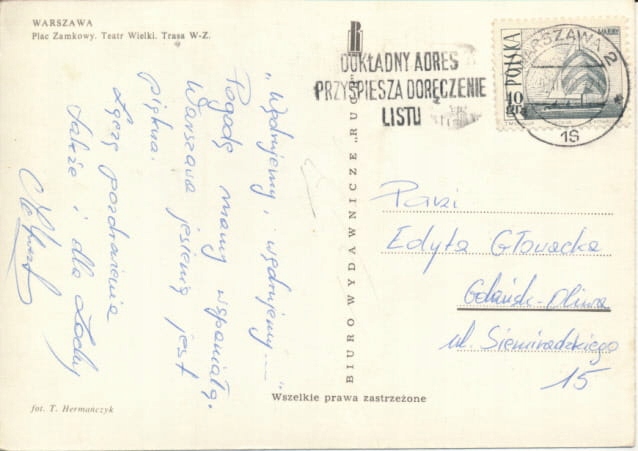 WARSZAWA
Plac Zamkowy. Teatr Wielki. Trasa W-Z.
„Wędrujemy, wędrujemy..."
Pogodę mamy wspaniałą.
Warszawa jesienią jest
piękna.
Łączę pozdrowienia
także i dla
fot. T. Hermańczyk
BIURO WYDAWNICZE „RUCH"
Wszelkie prawa zastrzeżone
DOKŁADNY ADRES
PRZYŚPIESZA DORĘCZENIE
LISTU
WARSZAWA 2
19
POLSKA
10 GR
Pani
Edyta Głowacka
Gdańsk-Oliwa
ul. Siemiradzkiego
15